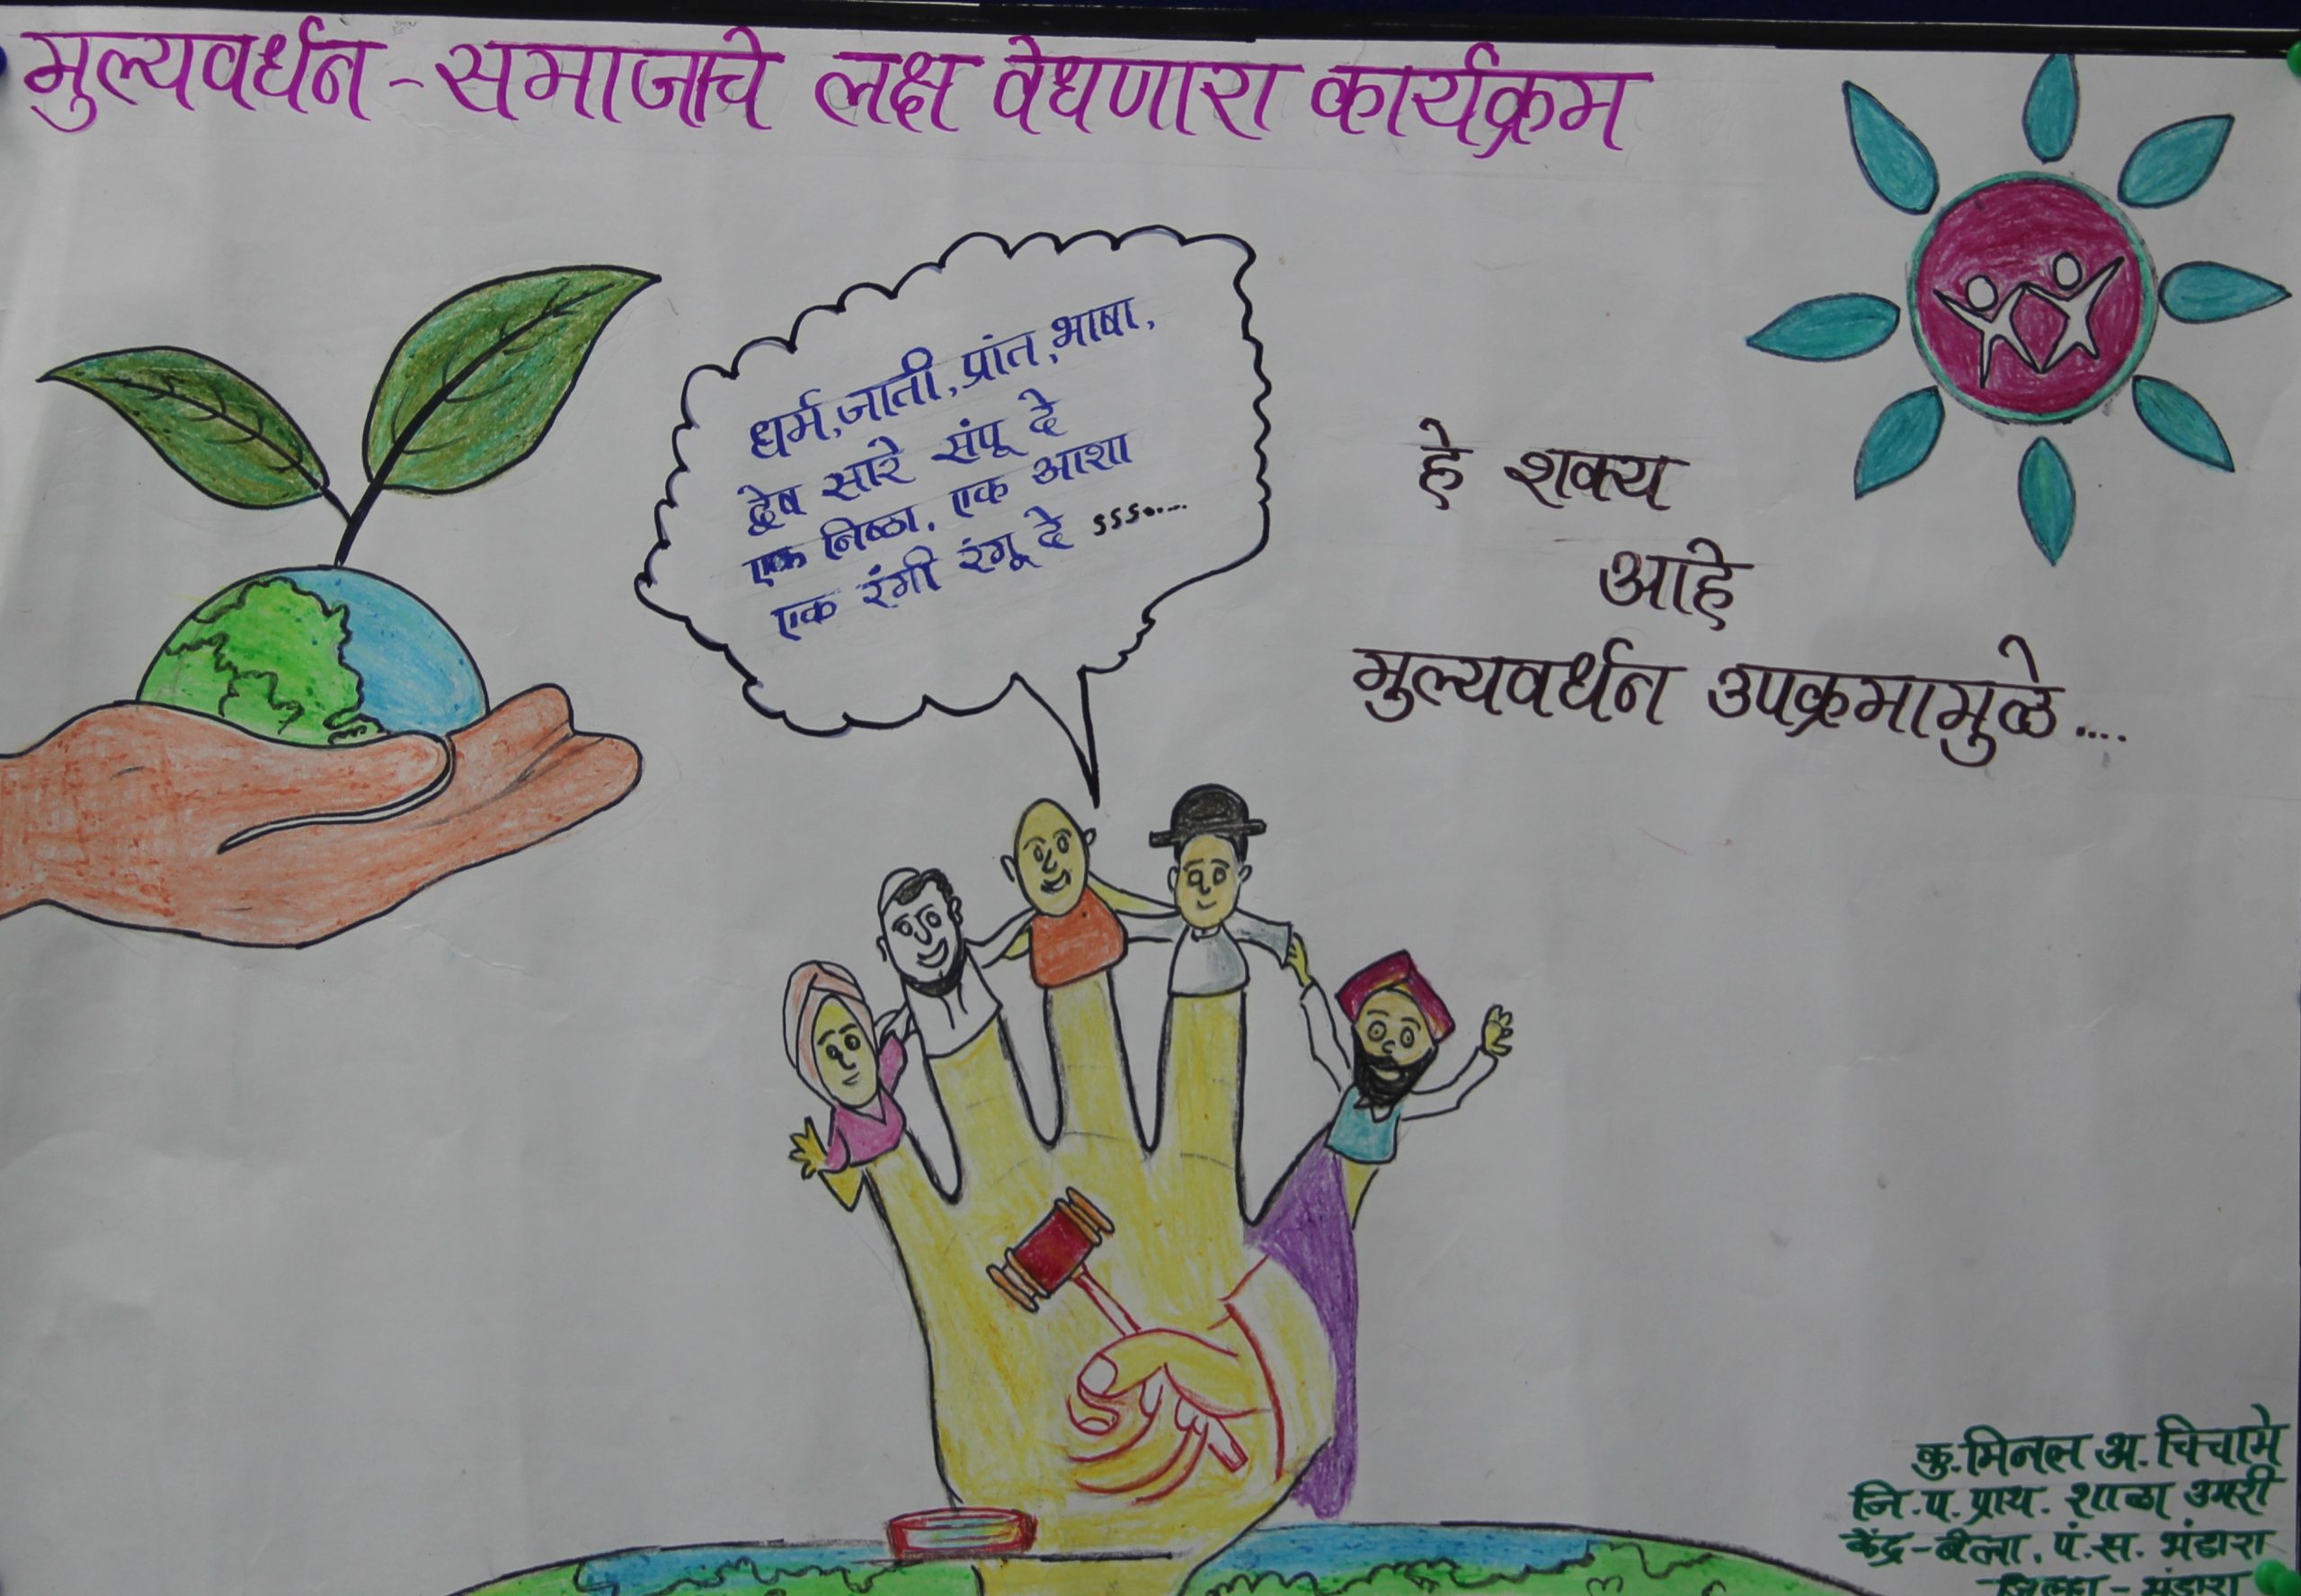 मुल्यवर्धन - समाजाचे लक्ष वेधणारा कार्यक्रम
धर्म, जाती, प्रांत, भाषा,
द्वेष सारे संपू दे
एक निष्ठा, एक आशा
एक रंगी रंगू दे sss.....
हे शक्य
आहे
मुल्यवर्धन उपक्रमामुळे....
कु. मिनल अ. चिचामे
जि.प. प्राथ. शाळा उमरी
केंद्र - बेला, पं.स. भंडारा
जिल्हा - भंडारा